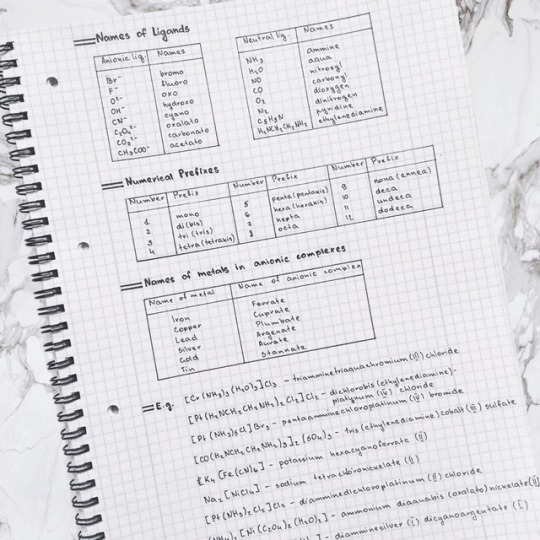 Names of Ligands
Anionic lig. Names
Br⁻ bromo
F⁻ fluoro
O²⁻ oxo
OH⁻ hydroxo
CN⁻ cyano
C₂O₄²⁻ oxalato
CO₃²⁻ carbonato
CH₃COO⁻ acetato
Neutral lig. Names
NH₃ ammine
H₂O aqua
NO nitrosyl
CO carbonyl
O₂ dioxygen
N₂ dinitrogen
C₅H₅N pyridine
H₂NCH₂CH₂NH₂ ethylenediamine
Numerical Prefixes
Number Prefix Number Prefix Number Prefix
1 mono 5 penta (pentaxis) 9 nona (ennea)
2 di (bis) 6 hexa (hexaxis) 10 deca
3 tri (tris) 7 hepta 11 undeca
4 tetra (tetraxis) 8 octa 12 dodeca
Names of metals in anionic complexes
Name of metal Name of anionic complex
Iron Ferrate
Copper Cuprate
Lead Plumbate
Silver Argenate
Gold Aurate
Tin Stannate
E.g. [Cr(NH₃)₃(H₂O)₃]Cl₃ - triamminetriaquachromium (III) chloride
[Pt(H₂NCH₂CH₂NH₂)₂Cl₂]Cl₂ - dichlorobis(ethylenediamine)-
platynum (IV) chloride
[Pt(NH₃)₅Cl]Br₃ - pentaamminechloroplatinum (IV) bromide
[CO(H₂NCH₂CH₂NH₂)₃]₂(SO₄)₃ - tris(ethylenediamine)cobalt (III) sulfate
K₄[Fe(CN)₆] - potassium hexacyanoferrate (II)
Na₂[NiCl₄] - sodium
[Pt(NH₃)₂Cl₂]Cl₂ - diamminedichloroplatinum chloride
[Ni(C₂O₄)₂(H₂O)₂] - ammonium diaquabis (oxalato) nickelate (II)
diamminesilver (I) dicyanoargentate (I)